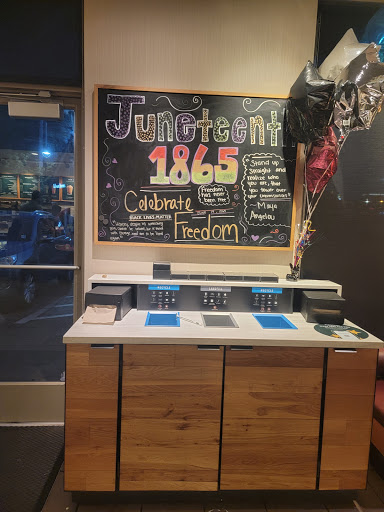 Juneteenth
1865
Celebrate
BLACK LIVES MATTER
Freedom
Freedom
has never
been free
Stand up
straight and
realize who
you are, that
you tower over
your circumstances
- Maya
Angelou
RECYCLE
LANDFILL
RECYCLE